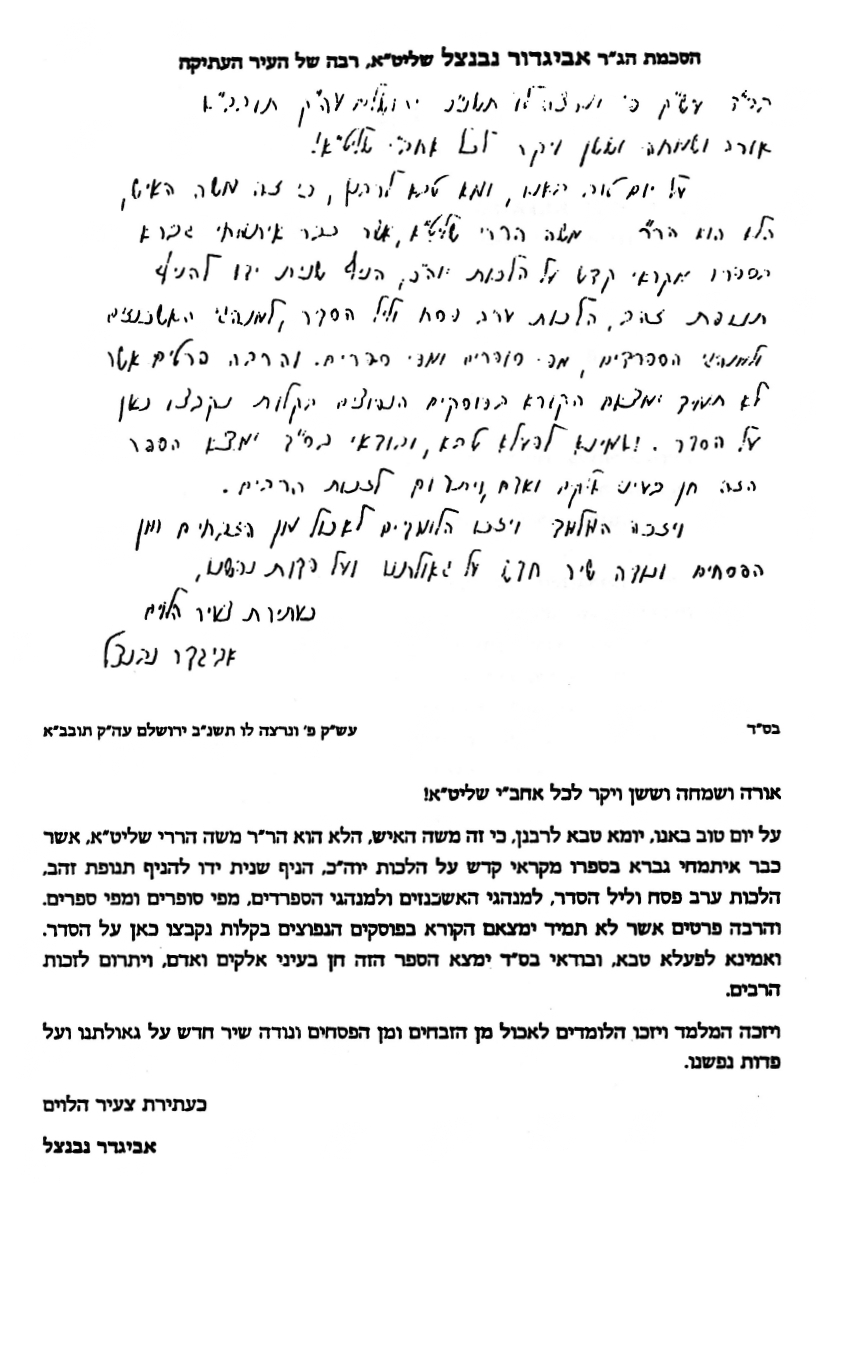 הסכמת הג"ר אביגדור נבנצל שליט"א, רבה של העיר העתיקה
בס"ד עש"ק פ' ונרצה לו תשנ"ב ירושלם עה"ק תובב"א
אורה ושמחה וששן ויקר לכל אחב"י שליט"א!
על יום טוב באנו, יומא טבא לרבנן, כי זה משה האיש,
הלא הוא הר"ר משה הררי שליט"א, אשר כבר איתמחי גברא
בספרו מקראי קדש על הלכות יוה"כ, הניף שנית ידו להניף
תנופת זהב, הלכות ערב פסח וליל הסדר, למנהגי האשכנזים
ולמנהגי הספרדים, מפי סופרים ומפי ספרים. והרבה פרטים אשר
לא תמיד ימצאם הקורא בפוסקים הנפוצים בקלות נקבצו כאן
על הסדר. ואמינא לפעלא טבא, ובודאי בס"ד ימצא הספר
הזה חן בעיני אלקים ואדם, ויתרום לזכות הרבים.
ויזכה המלמד ויזכו הלומדים לאכול מן הזבחים ומן
הפסחים ונודה שיר חדש על גאולתנו ועל פדות נפשנו,
כעתירת צעיר הלוים
אביגדר נבנצל
בס"ד עש"ק פ' ונרצה לו תשנ"ב ירושלם עה"ק תובב"א
אורה ושמחה וששן ויקר לכל אחב"י שליט"א!
על יום טוב באנו, יומא טבא לרבנן, כי זה משה האיש, הלא הוא הר"ר משה הררי שליט"א, אשר
כבר איתמחי גברא בספרו מקראי קדש על הלכות יוה"כ, הניף שנית ידו להניף תנופת זהב,
הלכות ערב פסח וליל הסדר, למנהגי האשכנזים ולמנהגי הספרדים, מפי סופרים ומפי ספרים.
והרבה פרטים אשר לא תמיד ימצאם הקורא בפוסקים הנפוצים בקלות נקבצו כאן על הסדר.
ואמינא לפעלא טבא, ובודאי בס"ד ימצא הספר הזה חן בעיני אלקים ואדם, ויתרום לזכות
הרבים.
ויזכה המלמד ויזכו הלומדים לאכול מן הזבחים ומן הפסחים ונודה שיר חדש על גאולתנו ועל
פדות נפשנו.
כעתירת צעיר הלוים
אביגדר נבנצל